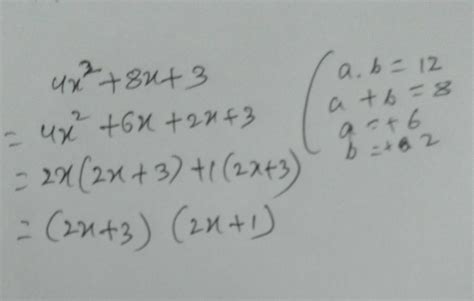 4x² + 8x + 3
= 4x² + 6x + 2x + 3
= 2x(2x + 3) + 1(2x+3)
= (2x+3) (2x+1)
a.b = 12
a + b = 8
a = +6
b = + 2